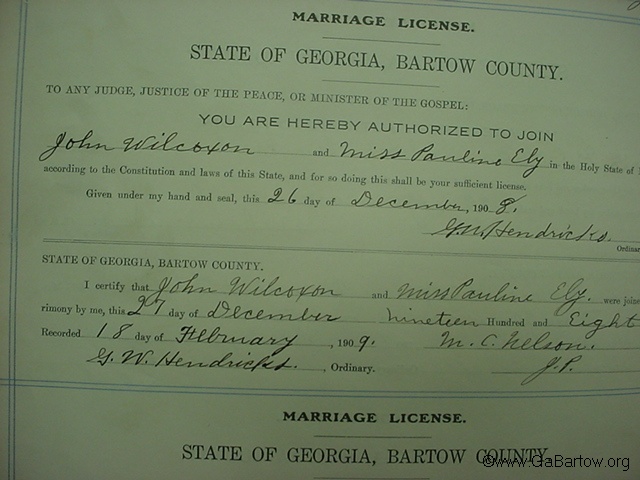 MARRIAGE LICENSE.
STATE OF GEORGIA, BARTOW COUNTY.
TO ANY JUDGE, JUSTICE OF THE PEACE, OR MINISTER OF THE GOSPEL:
YOU ARE HEREBY AUTHORIZED TO JOIN
John Wilcoxon and Miss Pauline Ely in the Holy State of
according to the Constitution and laws of this State, and for so doing this shall be your sufficient license.
Given under my hand and seal, this 26 day of December, 190 8.
G.W. Hendricks.
Ordinar
STATE OF GEORGIA, BARTOW COUNTY.
I certify that John Wilcoxon and Miss Pauline Ely. were joine
rimony by me, this 27 day of December nineteen Hundred and Eight
Recorded 18 day of February, 190 9. M. C. Nelson.
G. W. Hendricks., Ordinary. J. P.
MARRIAGE LICENSE.
STATE OF GEORGIA, BARTOW COUNTY.
©www.GaBartow.org